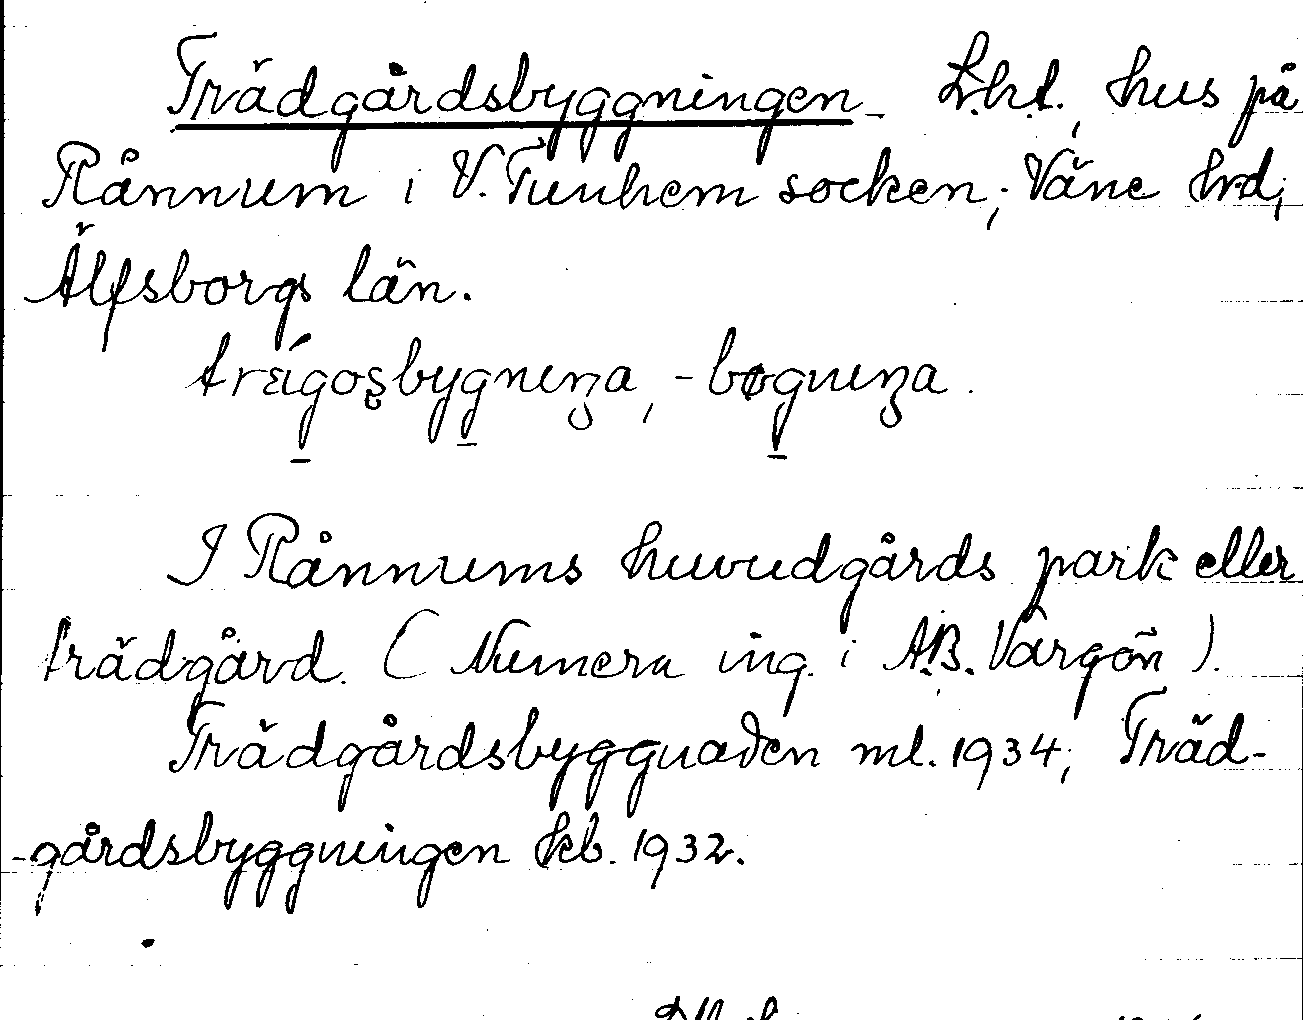 Trädgårdsbyggningen L.h.t., hus på
Rånnum i V. Tunhem socken, Väne hrd,
Älfsborgs län.
trägosbygneŋa, -bøgneŋa.
I Rånnums huvudgårds park eller
trädgård. (Numera ing. i A.B. Vargön).
Trädgårdsbyggnaden ml. 1934; Träd-
-gårdsbyggningen kb. 1932.